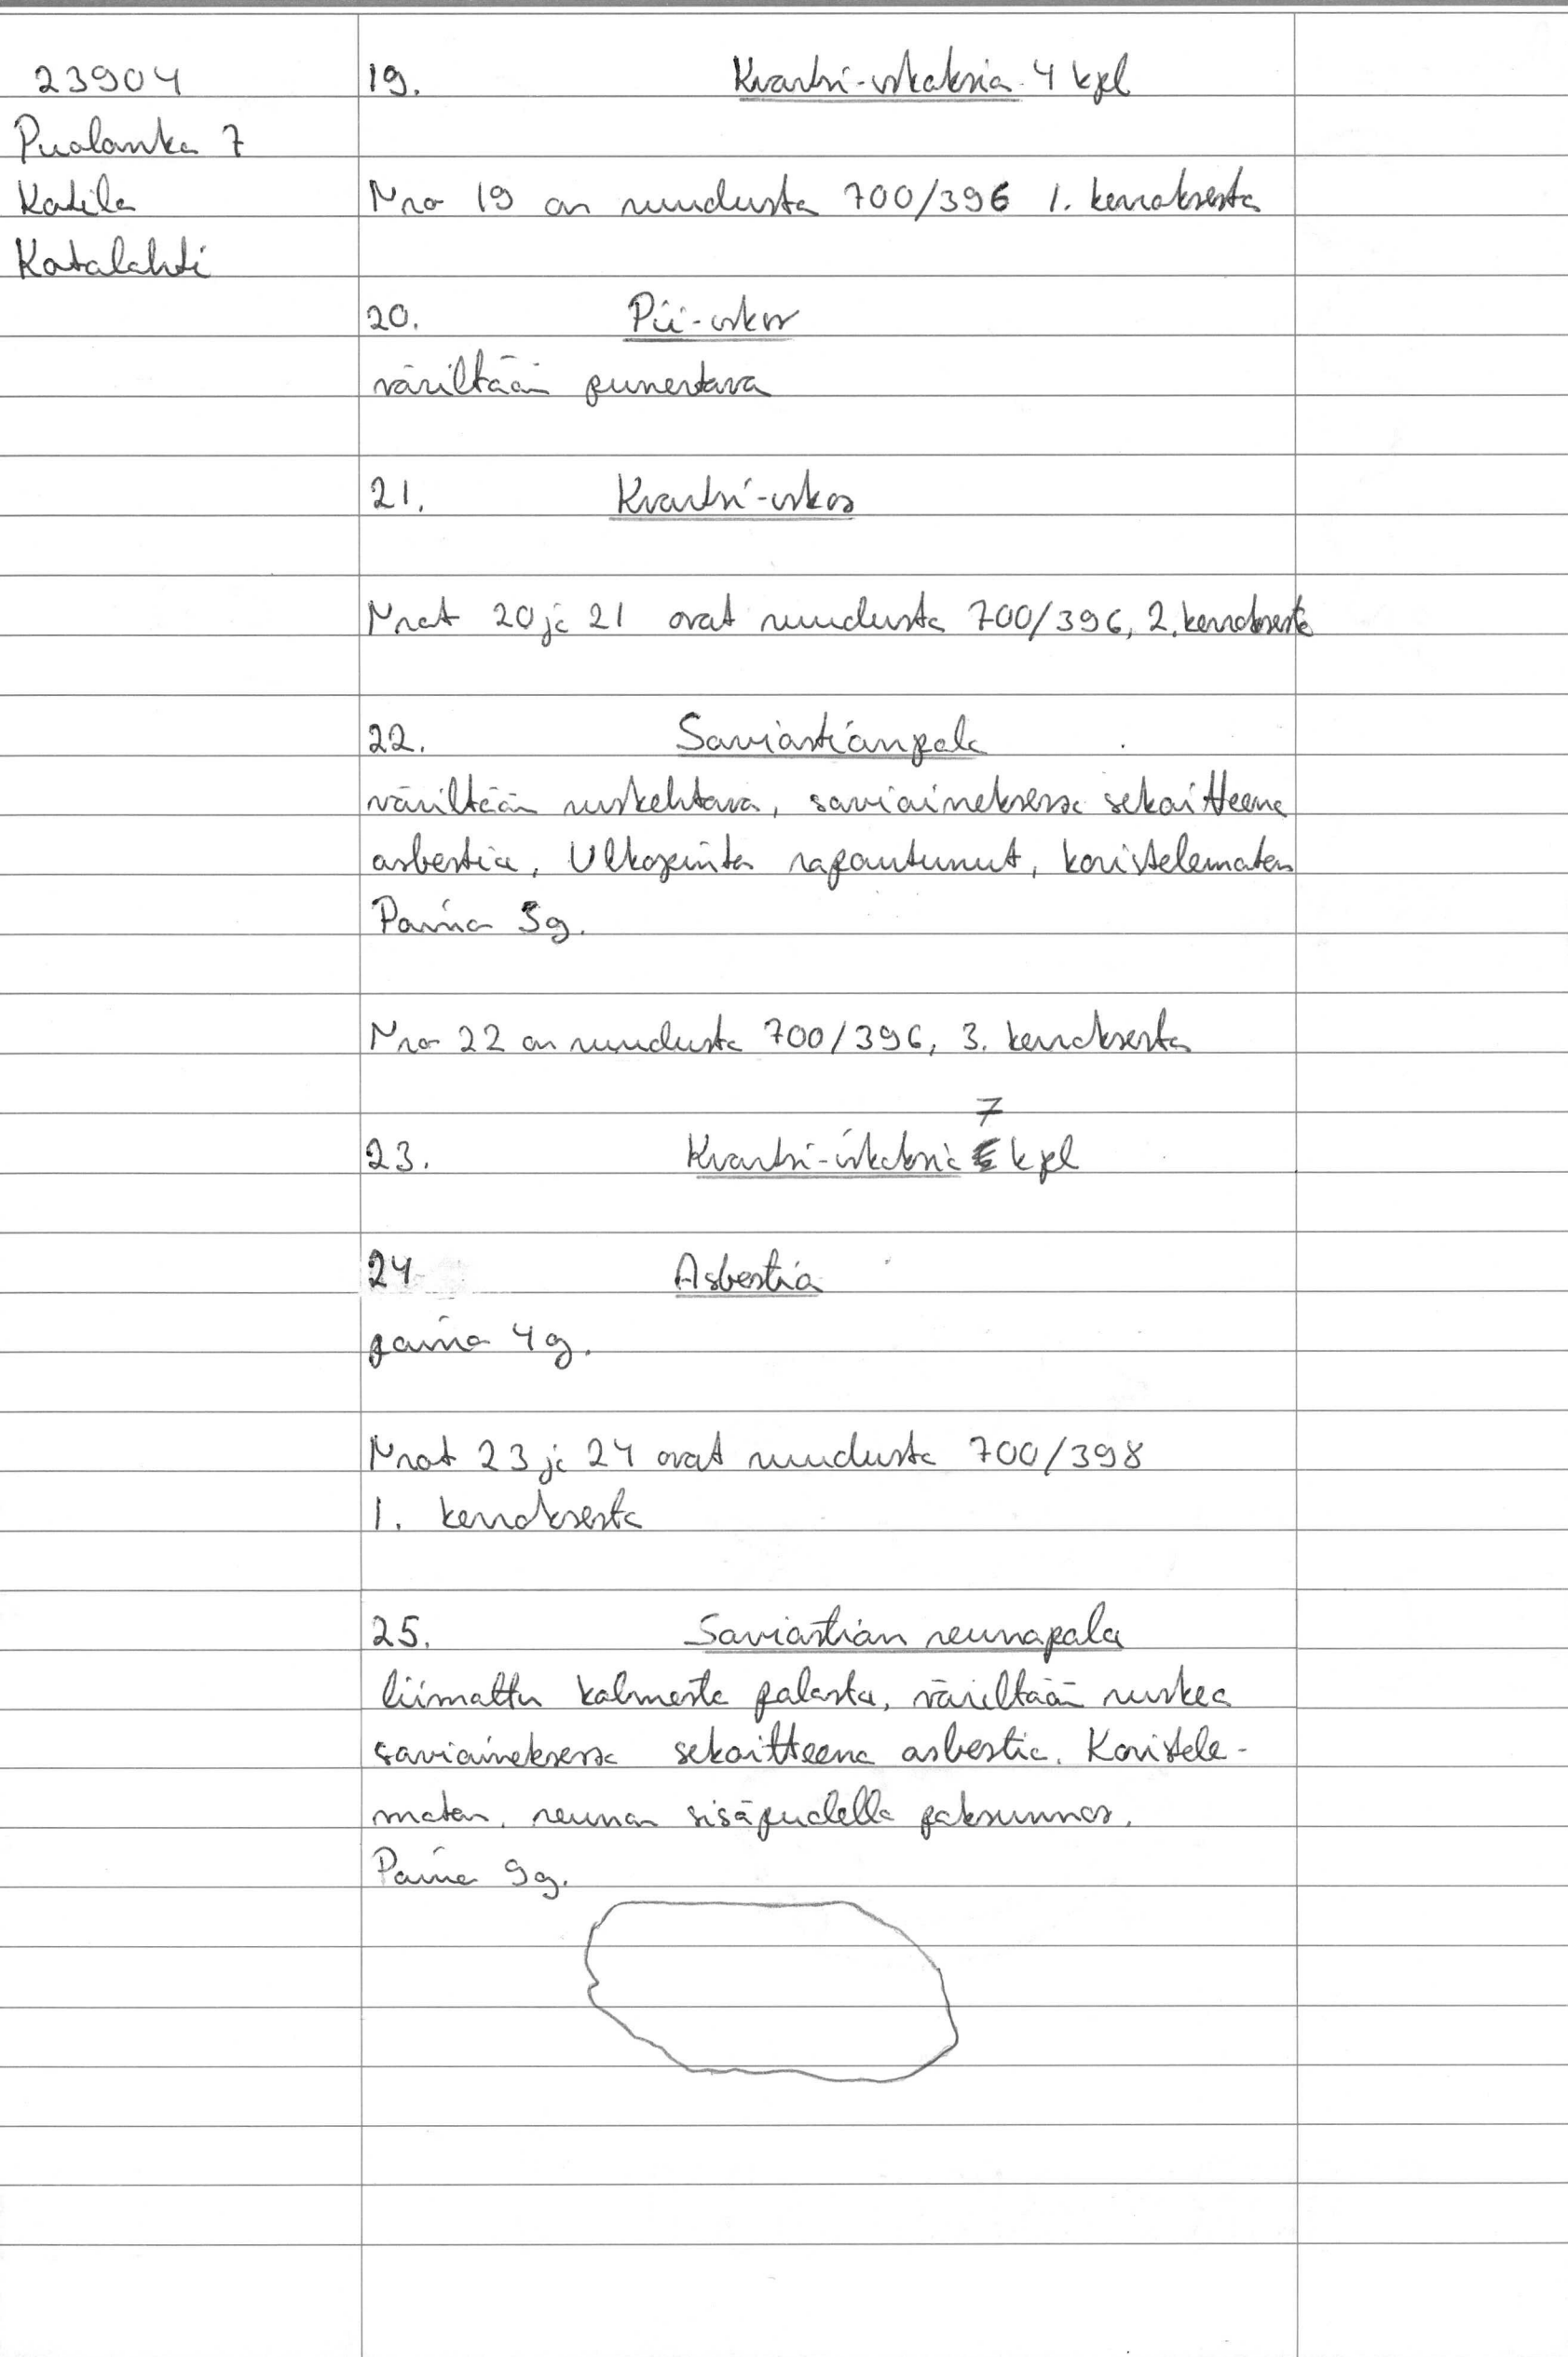 23904
Puolanka 7
Katila
Katalahti
19. Kvartsi-iskoksia 4 kpl
Nro 19 on ruudusta 700/396 1. kerroksesta
20. Pii-iskos
väriltään punertava
21. Kvartsi-iskos
Nrot 20 ja 21 ovat ruudusta 700/396, 2. kerroksesta
22. Saviastianpala
väriltään ruskehtava, saviaineksessa sekoitteena
asbestia, Ulkopinta rapautunut, koristelematon
Paino 3g.
Nro 22 on ruudusta 700/396, 3. kerroksesta
7
23. Kvartsi-iskoksia kpl
24 Asbestia
paino 4g.
Nrot 23 ja 24 ovat ruudusta 700/398
1. kerroksesta
25. Saviastian reunapala
liimattu kolmesta palasta, väriltään ruskea
saviaineksessa sekoitteena asbestia. Koristele-
maton. reunan sisäpuolella paksunnos.
Paino 9g.